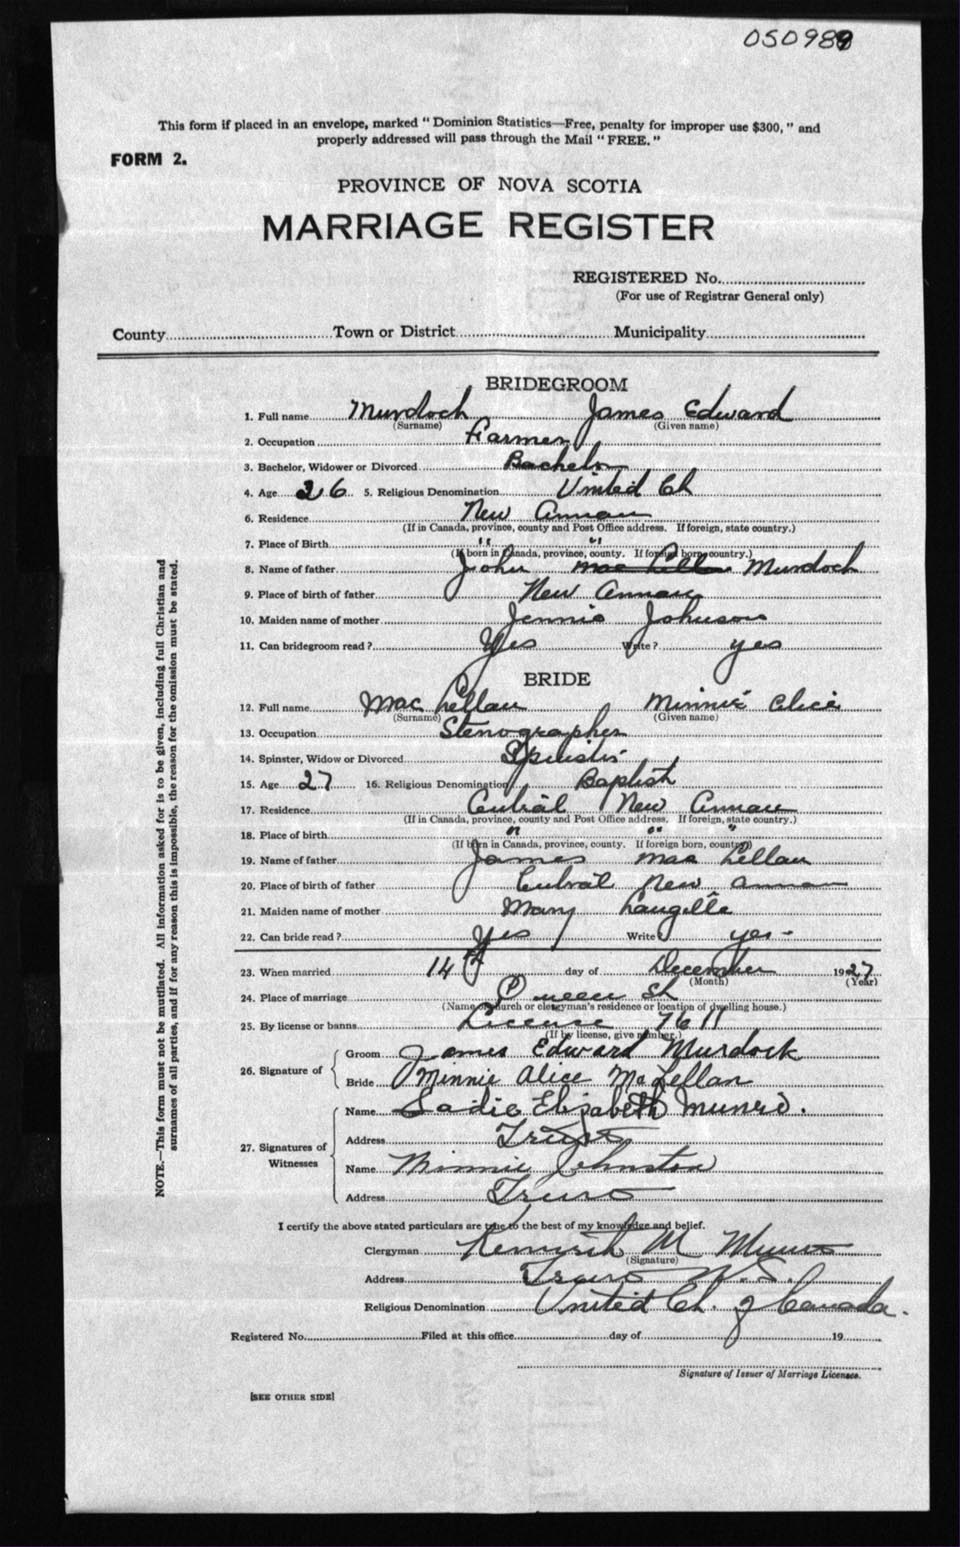 050989
This form if placed in an envelope, marked "Dominion Statistics—Free, penalty for improper use $300," and
properly addressed will pass through the Mail "FREE."
FORM 2.
PROVINCE OF NOVA SCOTIA
MARRIAGE REGISTER
REGISTERED No.
(For use of Registrar General only)
County Town or District Municipality
BRIDEGROOM
1. Full name Murdoch James Edward
(Surname) (Given name)
2. Occupation Farmer
3. Bachelor, Widower or Divorced Bachelor
4. Age 26 5. Religious Denomination United Ch
6. Residence New Annan
(If in Canada, province, county and Post Office address. If foreign, state country.)
7. Place of Birth " "
(If born in Canada, province, county. If foreign born, country.)
8. Name of father John Mac Lellan Murdoch
9. Place of birth of father New Annan
10. Maiden name of mother Jennie Johnson
11. Can bridegroom read? Yes Write? yes
BRIDE
12. Full name Mac Lellan Minnie Alice
(Surname) (Given name)
13. Occupation Stenographer
14. Spinster, Widow or Divorced Spinster
15. Age 27 16. Religious Denomination Baptist
17. Residence Central New Annan
(If in Canada, province, county and Post Office address. If foreign, state country.)
18. Place of birth " " "
(If born in Canada, province, county. If foreign born, country)
19. Name of father James Mac Lellan
20. Place of birth of father Central New Annan
21. Maiden name of mother Mary Langille
22. Can bride read? Yes Write? yes-
23. When married 14th day of December 1927
(Month) (Year)
24. Place of marriage Queen St
(Name of church or clergyman's residence or location of dwelling house.)
25. By license or banns License 7611
(If by license, give number.)
26. Signature of
Groom James Edward Murdock
Bride Minnie Alice McLellan
27. Signatures of Witnesses
Name Sadie Elizabeth Munro.
Address Truro
Name Minnie Johnston
Address Truro
I certify the above stated particulars are true to the best of my knowledge and belief.
Clergyman M Munro
(Signature)
Address Truro N.S.
Religious Denomination United Ch. of Canada.
Registered No. Filed at this office day of 19
Signature of Issuer of Marriage Licenses.
[SEE OTHER SIDE]
NOTE.—This form must not be mutilated. All information asked for is to be given, including full Christian and
surnames of all parties, and if for any reason this is impossible, the reason for the omission must be stated.